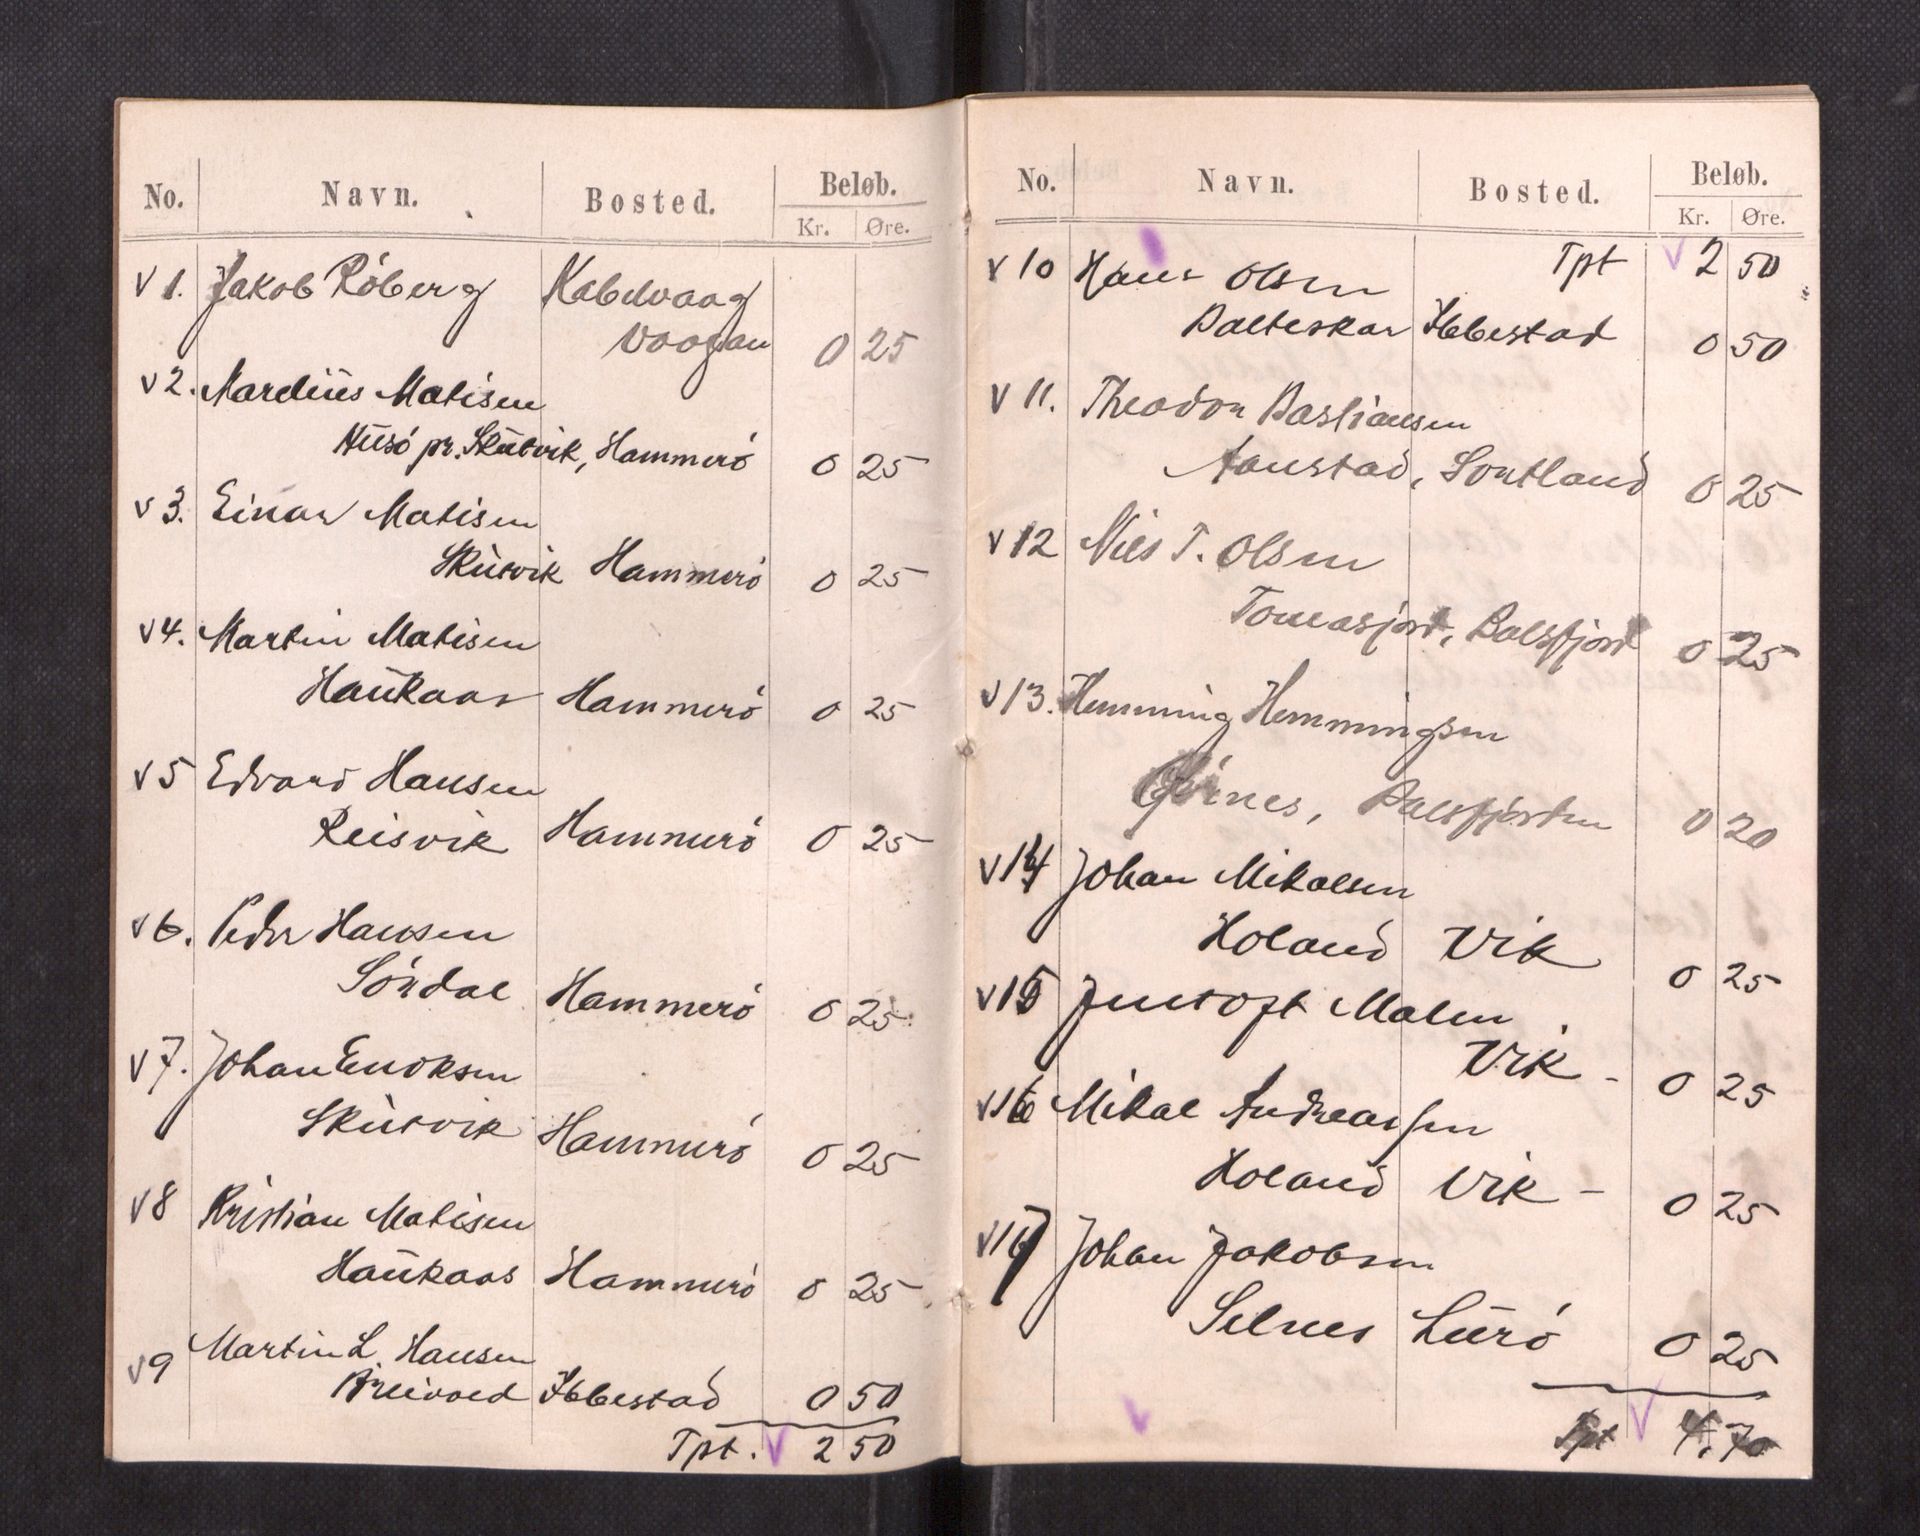 No. Navn. Bosted. Beløb.
Kr. Øre.
V 1. Jakob Röberg Kabelvaag
Vaagan 0 25
V 2. Mardius Matisen
Husö pr. Skutvik, Hammerö 0 25
V 3. Einar Matisen
Skutvik Hammerö 0 25
V 4. Martin Matisen
Haukaas Hammerö 0 25
V 5 Edvard Hansen
Reisvik Hammerö 0 25
V 6. Peder Hansen
Sördal Hammerö 0 25
V 7. Johan Enoksen
Skutvik Hammerö 0 25
V 8 Kristian Matisen
Haukaas Hammerö 0 25
V 9 Martin L. Hansen
Breivold Ibbestad 0 50
Tpt. V 2 50
No. Navn. Bosted. Beløb.
Kr. Øre.
Tpt V 2 50
V 10 Hans Olsen
Balteskar Ibbestad 0 50
V 11. Theodor Bastiansen
Aanstad, Sortland 0 25
V 12 Nils T. Olsen
Tomasjord, Balsfjord 0 25
V 13. Hemming Hemmingsen
Balsfjorden 0 20
V 14 Johan Mikalsen
Holand Vik 0 25
V 15 Jentoft Malen
Vik - 0 25
V 16 Mikal Andreassen
Holand Vik - 0 25
V 17 Johan Jakobsen
Selnes Lurö 0 25
Tpt V 4,70